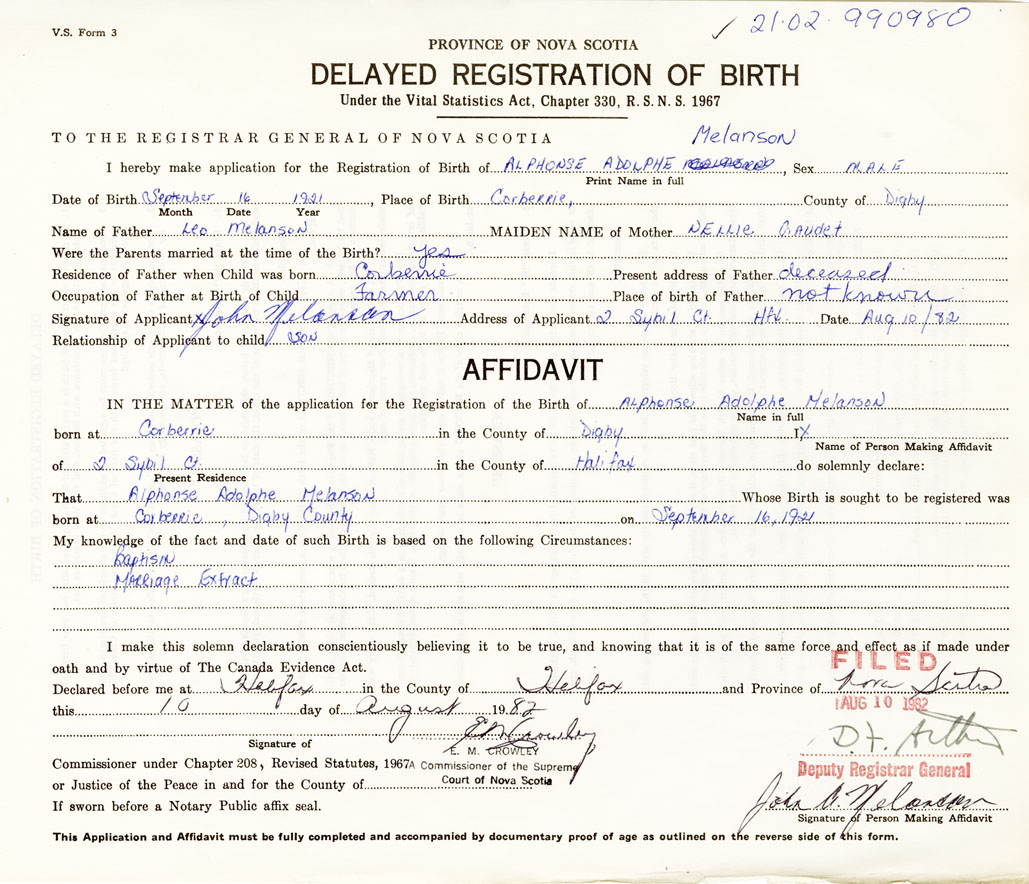 V.S. Form 3
✓ 21·02·990980
PROVINCE OF NOVA SCOTIA
DELAYED REGISTRATION OF BIRTH
Under the Vital Statistics Act, Chapter 330, R. S. N. S. 1967
TO THE REGISTRAR GENERAL OF NOVA SCOTIA
Melanson
I hereby make application for the Registration of Birth of ALPHONSE ADOLPHE , Sex MALE
Print Name in full
Date of Birth September 16 1921 , Place of Birth Corberrie, County of Digby
Month Date Year
Name of Father Leo Melanson MAIDEN NAME of Mother NELLIE Gaudet
Were the Parents married at the time of the Birth? yes
Residence of Father when Child was born Corberrie Present address of Father deceased
Occupation of Father at Birth of Child Farmer Place of birth of Father not known
Signature of Applicant x John Melanson Address of Applicant 2 Sybil Ct. Hfx. Date Aug 10/82
Relationship of Applicant to child son
AFFIDAVIT
IN THE MATTER of the application for the Registration of the Birth of Alphonse Adolphe Melanson
Name in full
born at Corberrie in the County of Digby I X
Name of Person Making Affidavit
of 2 Sybil Ct. in the County of Halifax do solemnly declare:
Present Residence
That Alphonse Adolphe Melanson Whose Birth is sought to be registered was
born at Corberrie, Digby County on September 16, 1921
My knowledge of the fact and date of such Birth is based on the following Circumstances:
Baptism
Marriage Extract
I make this solemn declaration conscientiously believing it to be true, and knowing that it is of the same force and effect as if made under
oath and by virtue of The Canada Evidence Act.
FILED
Declared before me at Halifax in the County of Halifax and Province of Nova Scotia
AUG 10 1982
this 10 day of August 1982
E M Crowley
Signature of E. M. CROWLEY
Commissioner under Chapter 208, Revised Statutes, 1967 A Commissioner of the Supreme
Deputy Registrar General
or Justice of the Peace in and for the County of Court of Nova Scotia
John A. Melanson
If sworn before a Notary Public affix seal.
Signature of Person Making Affidavit
This Application and Affidavit must be fully completed and accompanied by documentary proof of age as outlined on the reverse side of this form.